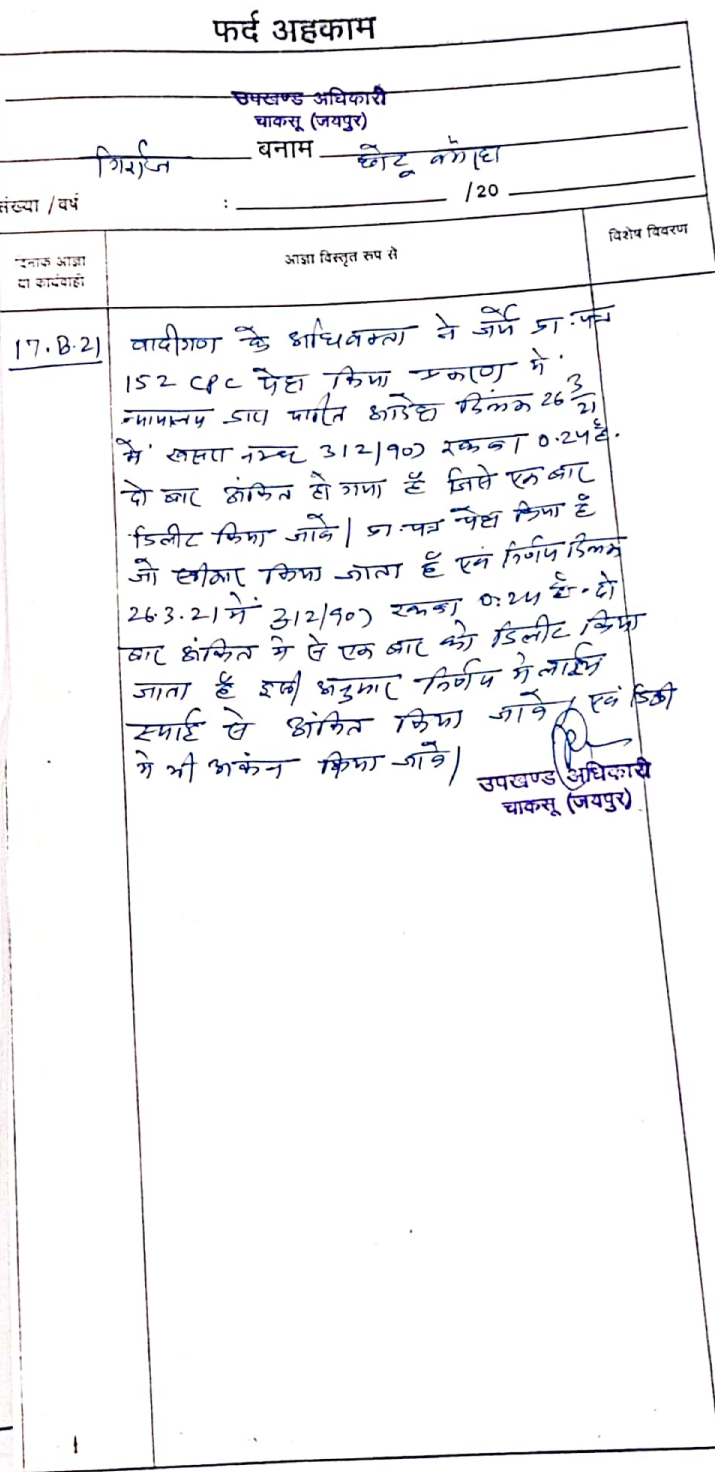 फर्द अहकाम
उपखण्ड अधिकारी
चाकसू (जयपुर)
गिर्राज बनाम छोटू वगैरहा
संख्या / वर्ष : /20
आज्ञा विस्तृत रूप से
विशेष विवरण
आज्ञा
कार्यवाही
वादीगण के अधिवक्ता ने प्रा.पत्र
152 CPC पेश किया प्रकरण में
न्यायालय द्वारा पारित आदेश दिनांक 26 3/21
में खसरा नम्बर 312/907 रकबा 0.24 है.
दो बार अंकित हो गया है जिसे एक बार
डिलीट किया जावे। प्रा.पत्र पेश किया है
जो स्वीकार किया जाता है एवं निर्णय दिनांक
26.3.21 में 312/907 रकबा 0.24 है. दो
बार अंकित मे से एक बार को डिलीट किया
जाता है इसी अनुसार निर्णय मे लाईन
स्याई से अंकित किया जावे एवं डिक्री
मे भी अकंन किया जावे।
उपखण्ड अधिकारी
चाकसू (जयपुर)